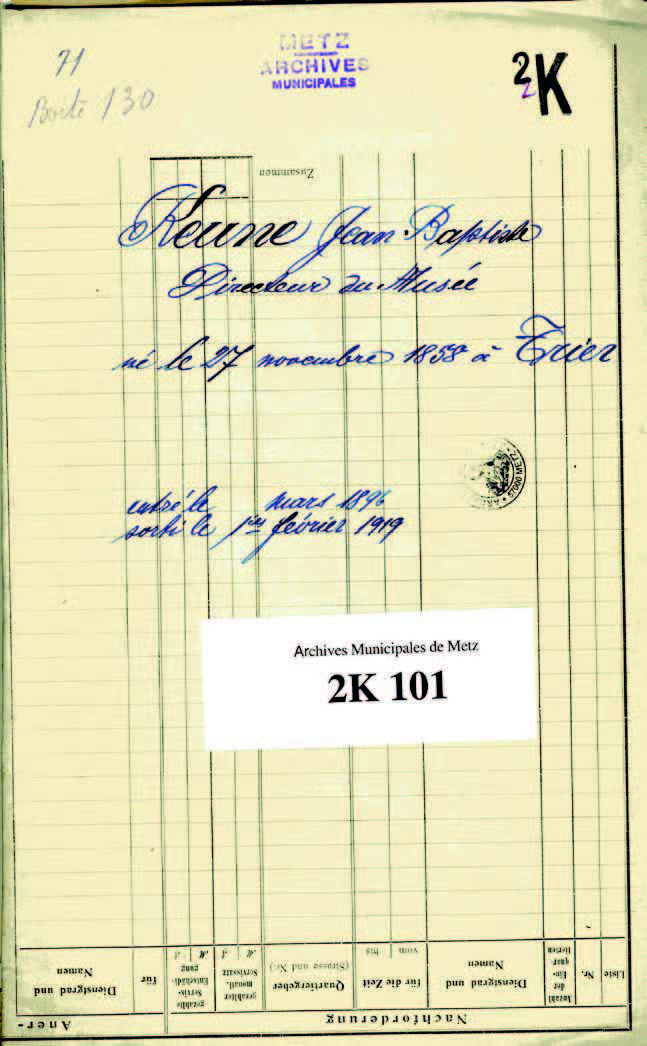 71
Boîte 130
METZ
ARCHIVES
MUNICIPALES
2K
2
Zusammen
Keune Jean-Baptiste
Directeur du Musée
né le 27 novembre 1858 à Trier
57000 METZ
entré le mars 1896
sorti le 1er février 1919
Archives Municipales de Metz
2K 101
Nachforderung
Aner-
Liste
Nr.
Anzahl
der
Ein-
quar-
tierten
Dienstgrad und
Namen
für die Zeit
vom
bis
Quartiergeber
(Strasse und Nr.)
gezahlter
monatl.
Servissatz
M
gezahlte
Servis-
Entschädi-
gung
M
für
Dienstgrad und
Namen